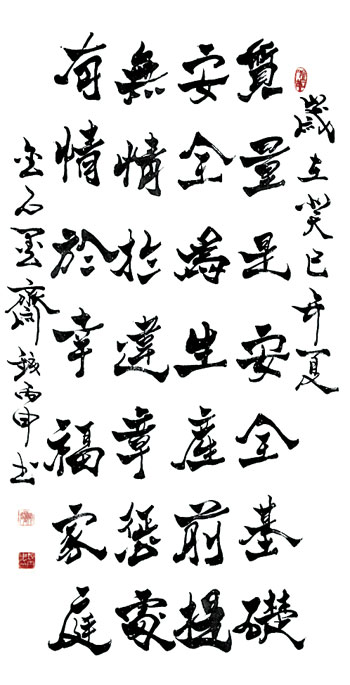 歲在癸巳年夏
質量是安全基礎
安全為生產前提
無情於違章懲處
有情於幸福家庭
金石墨齋 丙申书